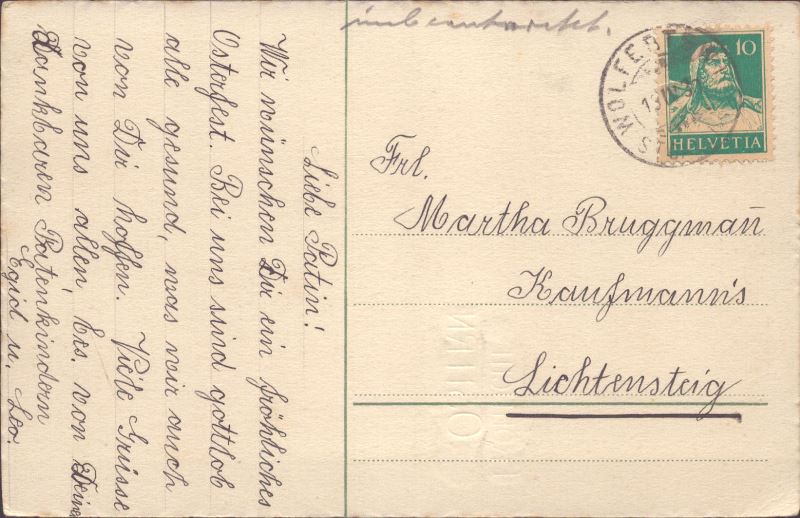 Liebe Patin!
Wir wünschen Dir ein fröhliches
Osterfest. Bei uns sind gottlob
alle gesund, was wir auch
von Dir hoffen. Viele Grüsse
von uns allen, bes. von Deinen
dankbaren Patenkindern
Egid u. Leo.
unbeantwortet.
10
HELVETIA
Frl.
Martha Bruggmañ
Kaufmanns
Lichtensteig